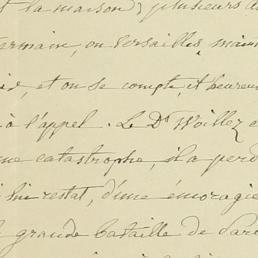 t la maison; plusieurs d
ermain, ou Versailles, main
id, et on se compte, et heureu
à l'appel. Le Dr Woillez e
ne catastrophe, il a perd
i lui restat, d'une émoragie
grande bataille de Pare